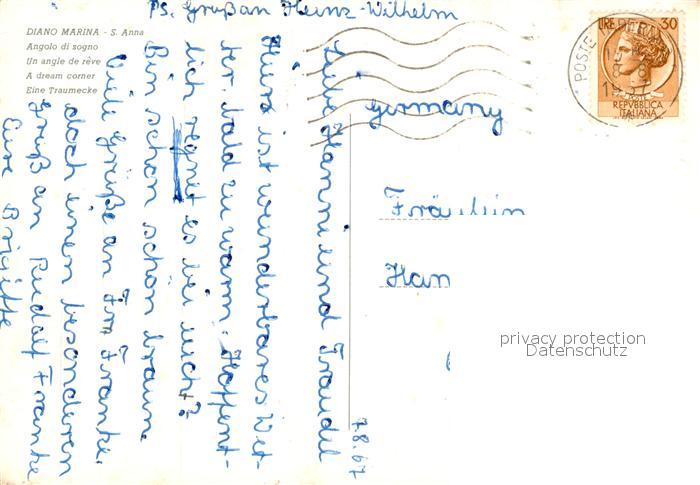 DIANO MARINA - S. Anna
Angolo di sogno
Un angle de rêve
A dream corner
Eine Traumecke
Ps. Gruß an Heinz-Wilhelm
7.8.67
Liebe Hanni und Traudel
Hier ist wunderbares Wet-
ter. bald zu warm. Hoffent-
lich regnet es bei euch?
Bin schon schön braun.
Viele Grüße an Fam Franke.
doch einen besonderen
Gruß an Rudolf Franke
Eure Brigitte
LIRE 30
POSTE
REPVBBLICA
ITALIANA
POSTE
germany
Fräulein
Han
privacy protection
Datenschutz